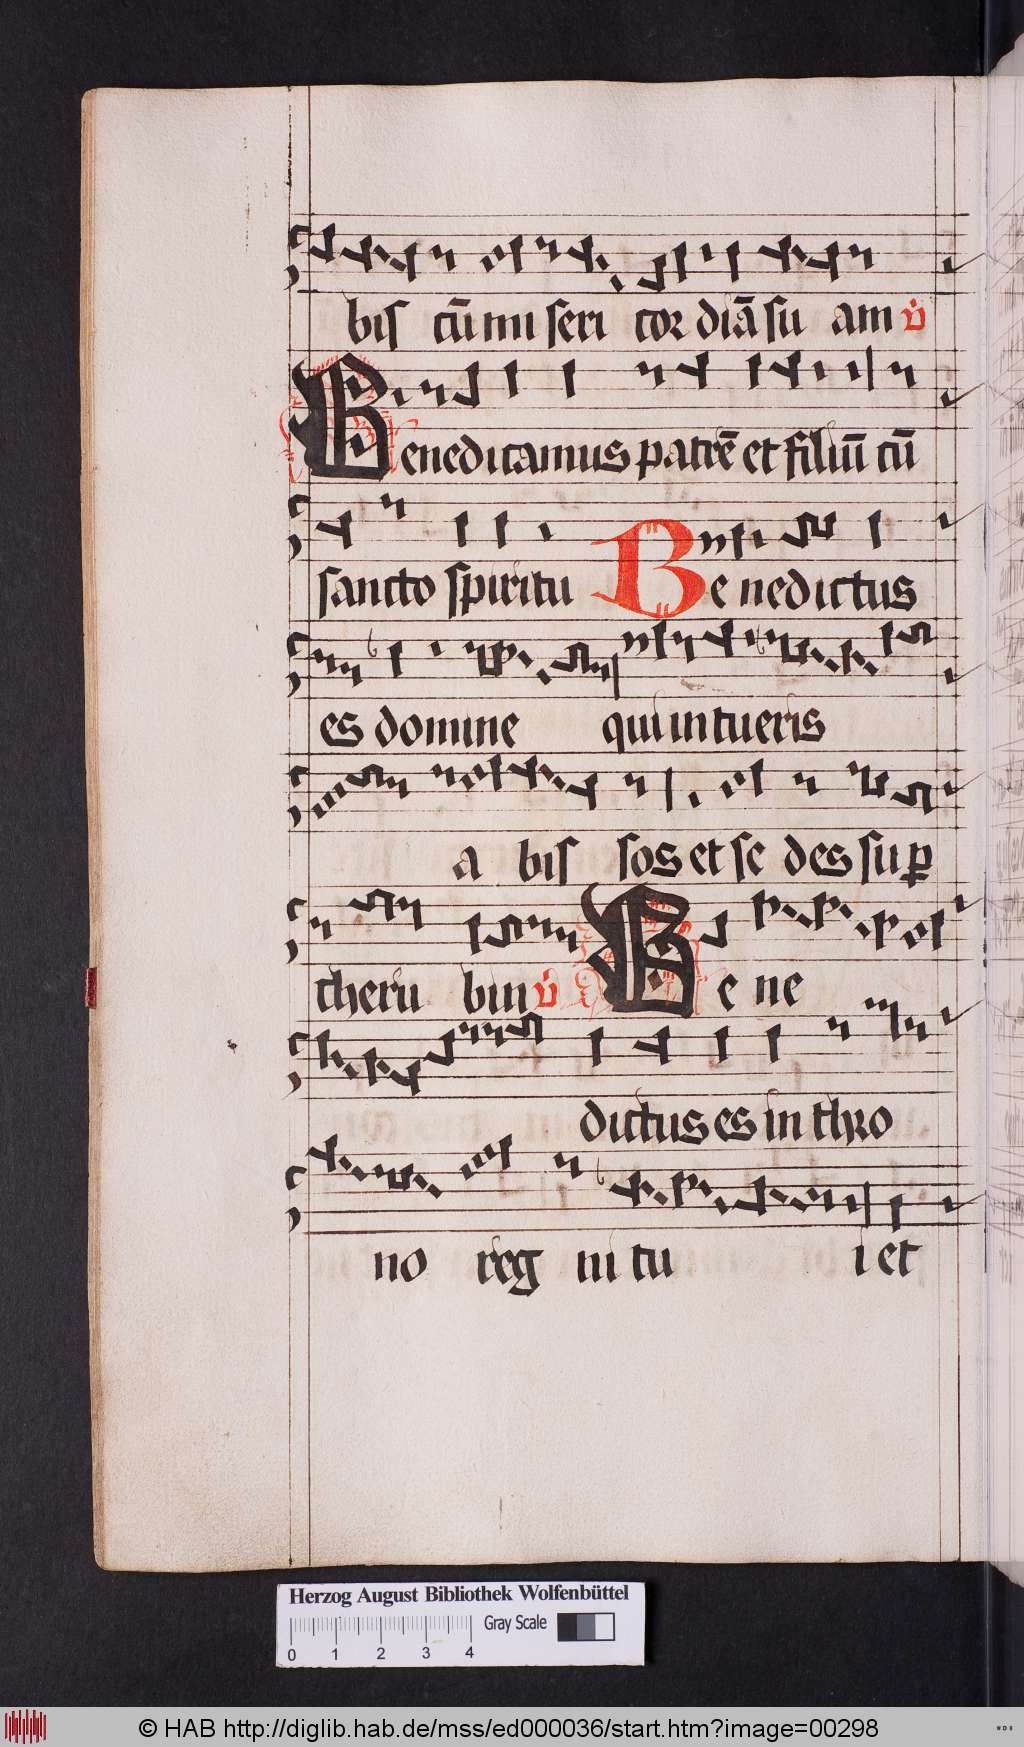 bis cū mi seri cor diā su am v̇
Benedicamus patrē et filiū cū
sancto spiritu Be nedictus
es domine qui intueris
a bis sos et se des su ꝑ
cheru bin v̇ Be ne
dictus es in thro
no reg ni tu i et
Herzog August Bibliothek Wolfenbüttel
Gray Scale
0 1 2 3 4
© HAB http://diglib.hab.de/mss/ed000036/start.htm?image=00298